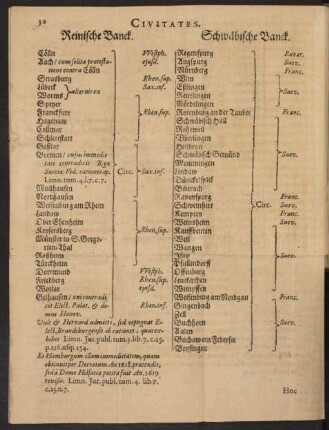 30 CIVITATES.
Reinische Banck.
Cölln Westph.
Aach / cum solita protesta- ejusd.
tione contra Cölln
Straßburg Rhen.sup.
Lübeck Sax.inf.
Worms } alterniren
Speyer
Franckfurt Rhen.sup.
Hagenaw
Colmar
Schletstatt
Goßlar
Bremen / cujus immedie-
tate contradicit Rex
Sueciæ. Vid. rationes ap. Circ. Sax.inf.
Limn. tom. 4. l. 7. c. 7.
Mülhausen
Northausen
Weissenburg am Rhein
Landaw
Ober Ehenheim
Keysersberg Rhen.sup.
Münster in S. Grego-
rien-Thal
Roßheim
Türckheim
Dortmund Westph.
Friedberg Rhen.sup.
Wetzlar ejusd.
Gelhausen / cui contradi-
cit Elect. Palat. & do- Rhen.inf.
mus Hanov.
Unit & Hervord admitti, sed repugnat E-
lect. Brandeburgensis ob rationes, quas ex-
hibet Limn. Jur. publ. tom. 4. lib. 7. c. 25.
p. 126. usq. 154.
Et Hamburgum ob immedietatem, quam
obtinuit per Decretum An. 1618. præten dit,
sed à Domo Holsatiæ petita fuit An. 1619
revisio. Limn. Jur. publ. tom. 4. lib. 7.
c. 25. n. 7.
Schwäbische Banck.
Regenspurg Bavar.
Augspurg Suev.
Nürnberg Franc.
Ulm
Eßlingen Suev.
Reutlingen
Nördlingen
Rotenburg an der Tauber Franc.
Schwäbisch Hall
Rothweil
Uberlingen
Heilbron
Schwäbisch Gemünd Suev.
Memmingen
Lindaw
Dünckelspühl
Biberach
Ravenspurg Franc.
Schweinfurt Circ. Suev.
Kempten Franc.
Weinsheim Suev.
Kauffbeuren
Weil
Wangen
Ißny Suev.
Pfullendorff
Offenburg
Leutkirchen
Wimpffen
Weissenburg am Nordgau Franc.
Giengenbach
Zell
Buchhorn Suev.
Aalen
Buchaw am Federsee
Bopfingen
Hoc